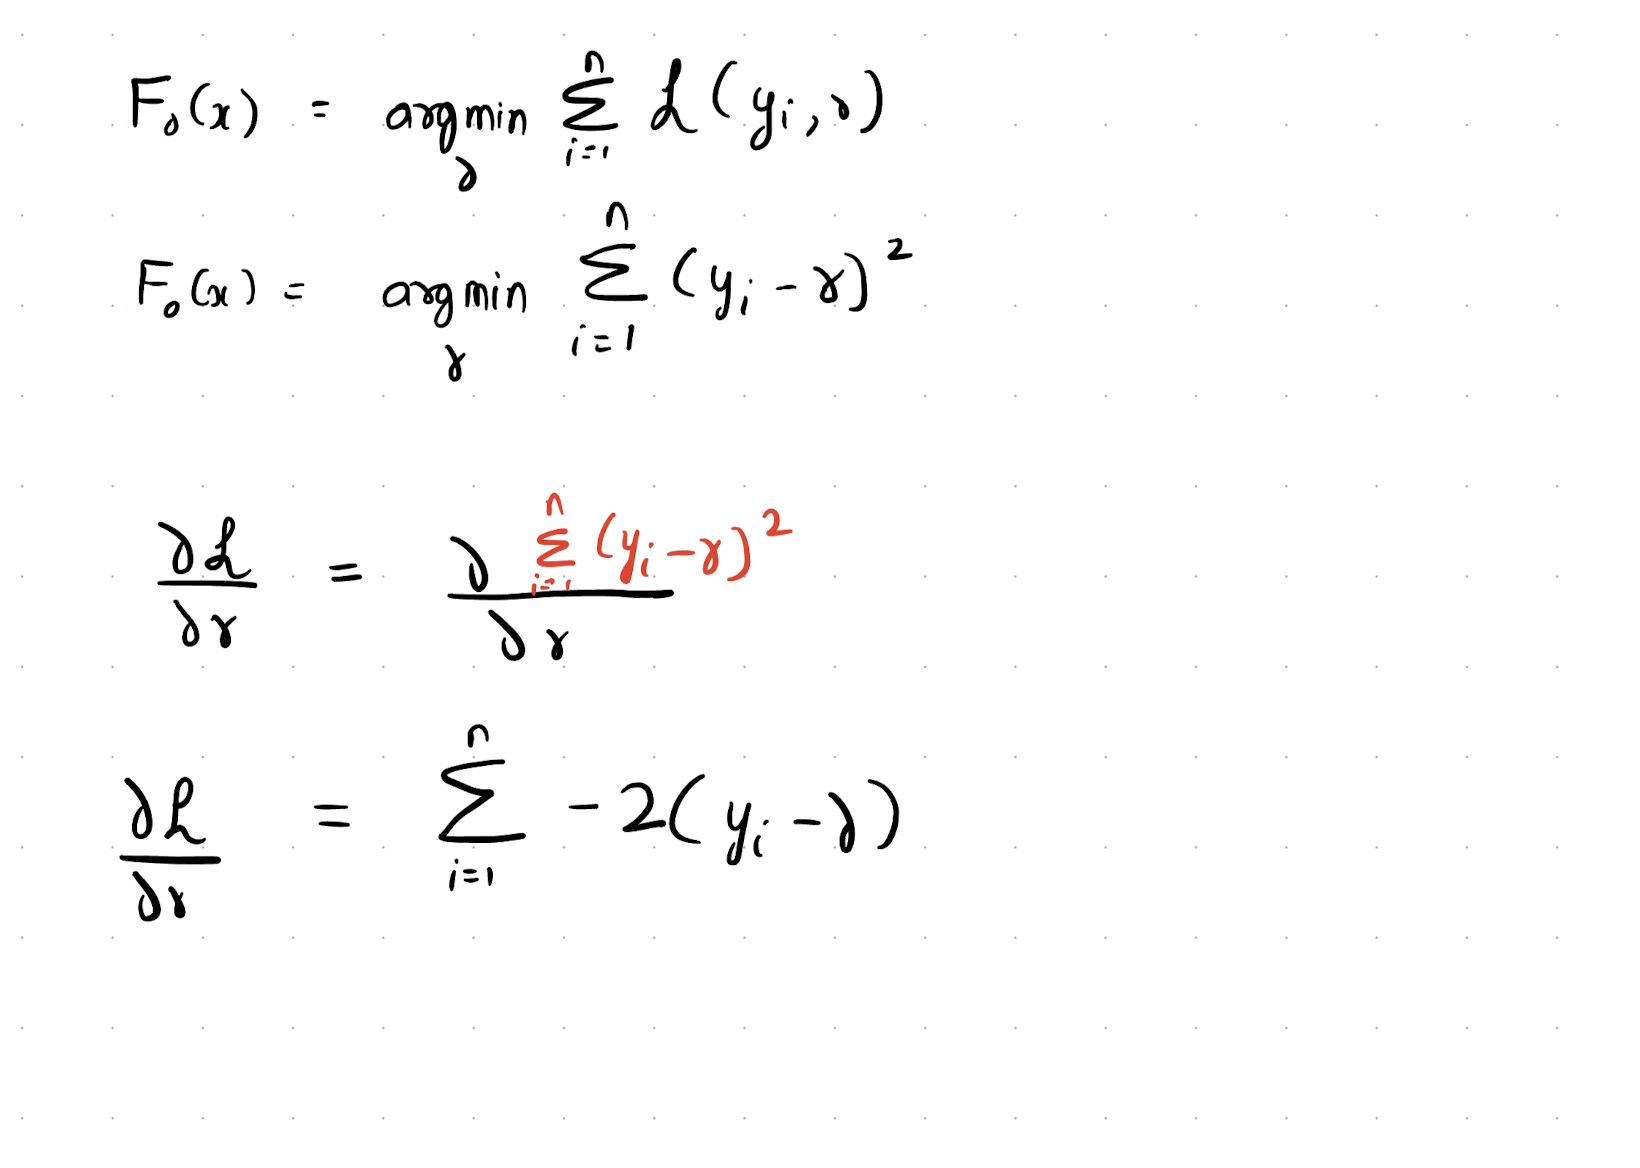 F₀(x) = argmin_γ Σ_{i=1}^{n} ℒ(yᵢ, γ)
F₀(x) = argmin_γ Σ_{i=1}^{n} (yᵢ - γ)²
∂ℒ/∂γ = ∂ Σ_{i=1}^{n} (yᵢ - γ)² / ∂γ
∂ℒ/∂γ = Σ_{i=1}^{n} -2(yᵢ - γ)